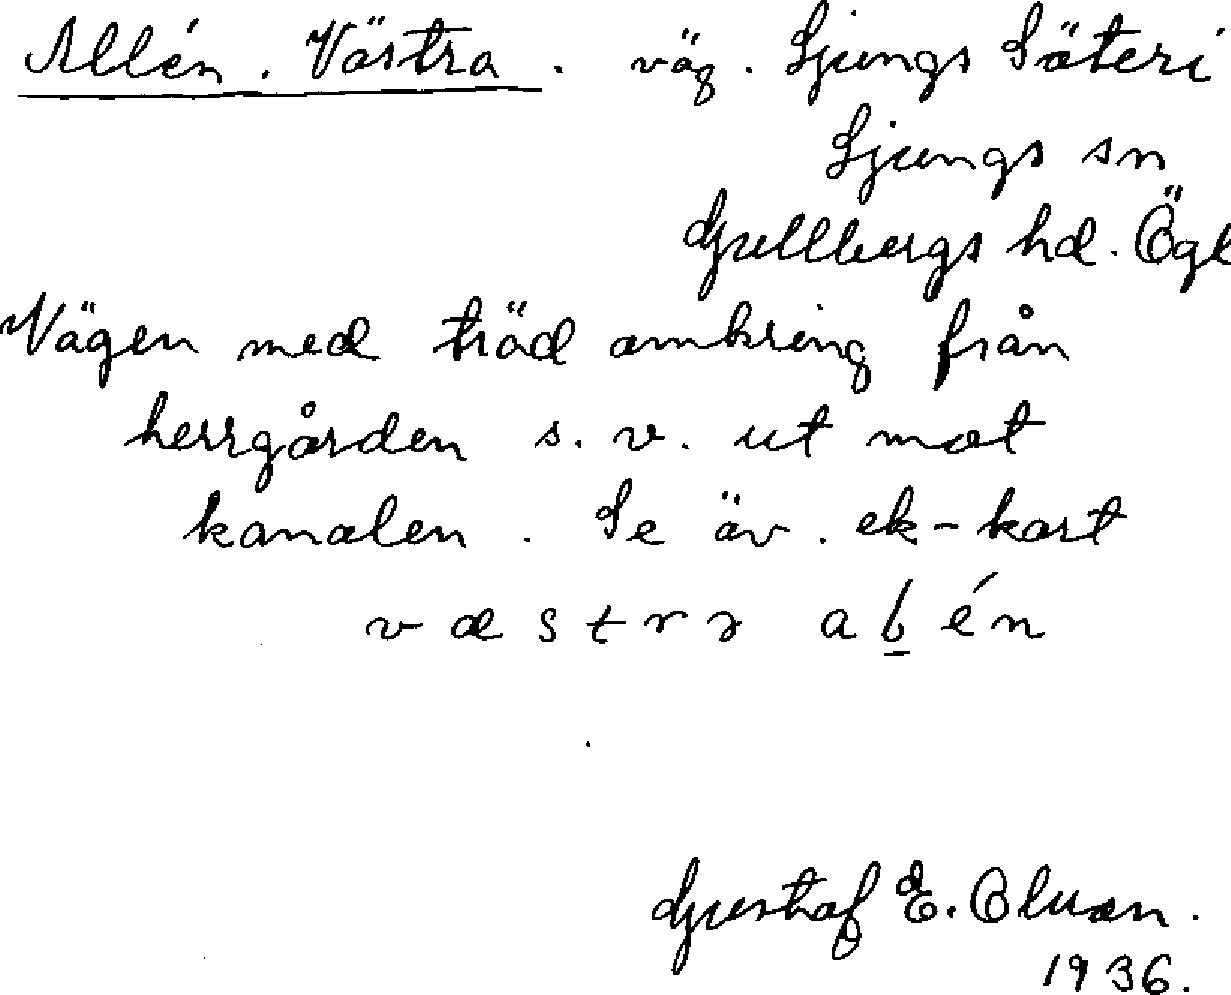 Allén. Västra. väg. Ljungs Säteri
Ljungs sn
Gullbergs hd. Ögl
Vägen med träd omkring från
herrgården s. v. ut mot
kanalen. Se äv. ek-kart
v æ s t r a é n
Gustaf E.
1936.